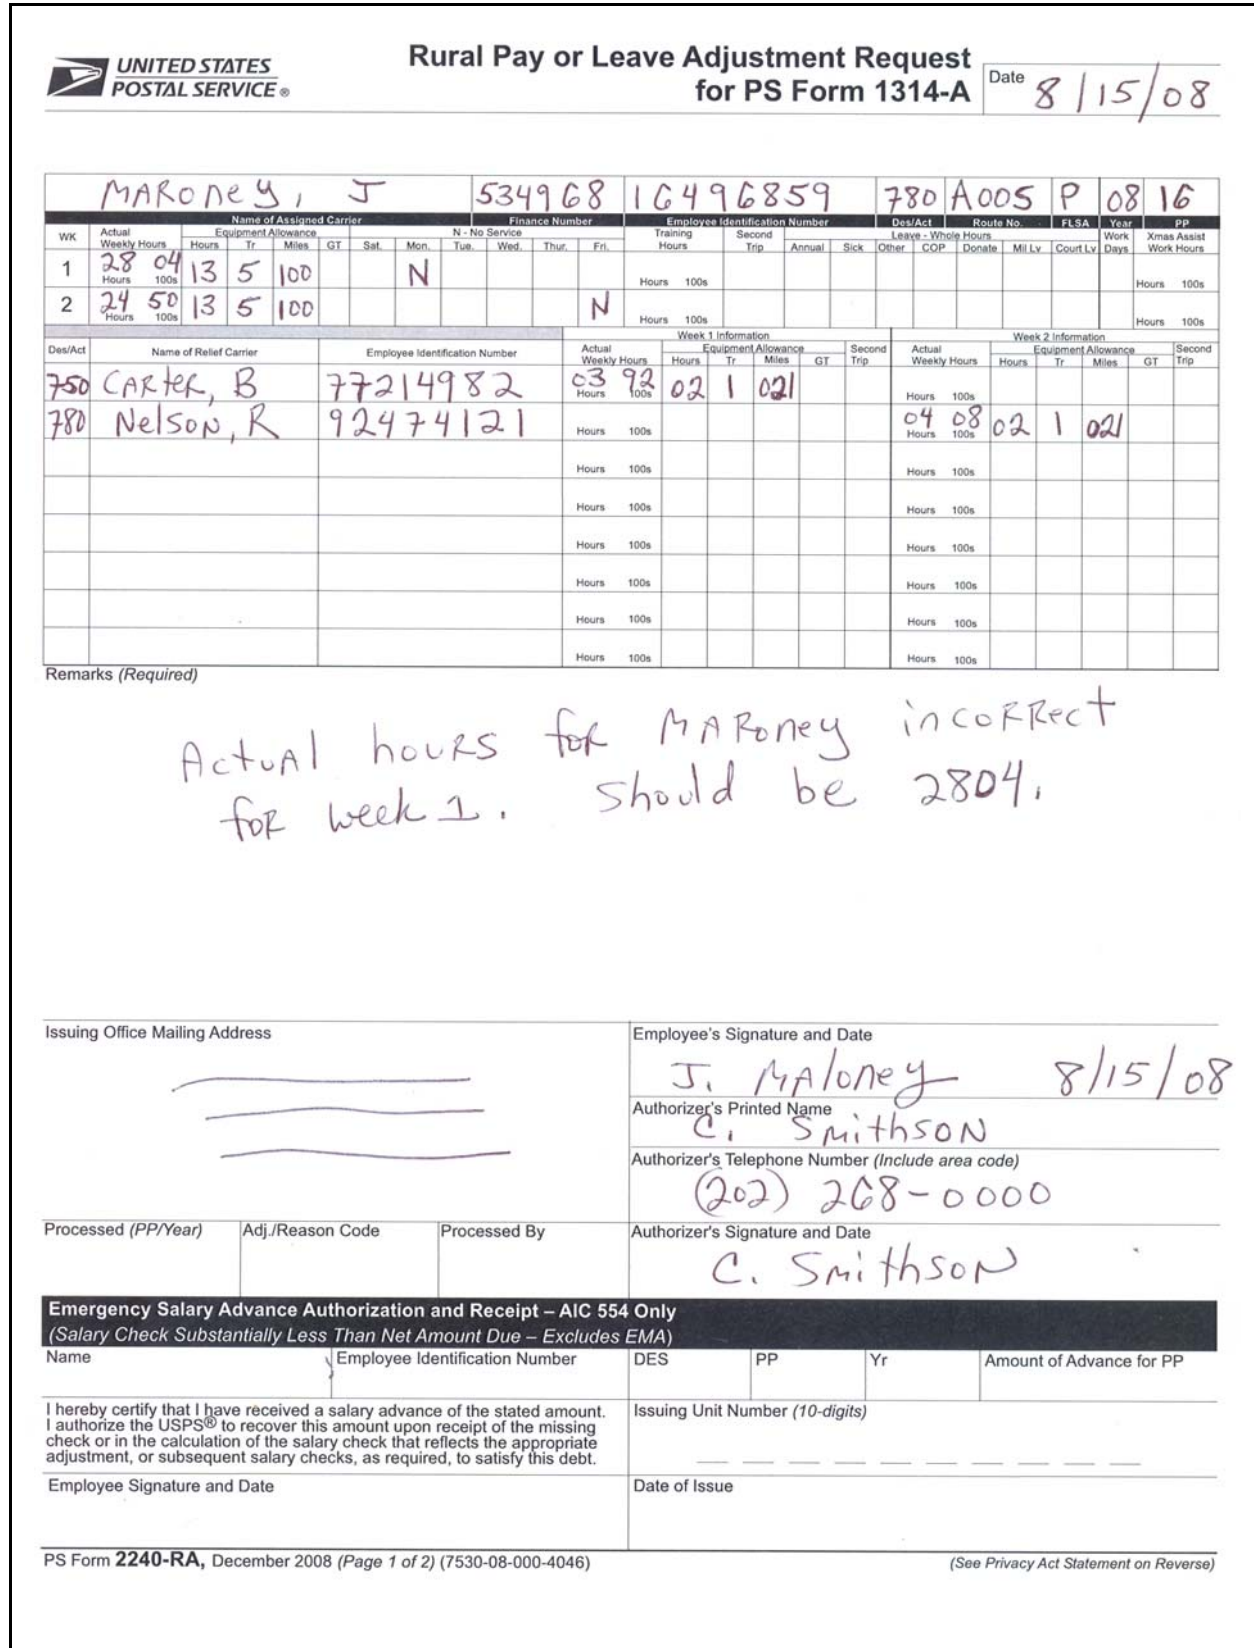 UNITED STATES
POSTAL SERVICE ®
Rural Pay or Leave Adjustment Request
for PS Form 1314-A
Date 8/15/08
MARoney, J 534968 16496859 780 A005 P 08 16
Name of Assigned Carrier Finance Number Employee Identification Number Des/Act Route No. FLSA Year PP
WK Actual Weekly Hours Equipment Allowance Hours Tr Miles GT N - No Service Sat. Mon. Tue. Wed. Thur. Fri. Training Hours Second Trip Leave - Whole Hours Annual Sick Other COP Donate Mil Lv Court Lv Work Days Xmas Assist Work Hours
1 28 04 Hours 100s 13 5 100 N Hours 100s Hours 100s
2 24 50 Hours 100s 13 5 100 N Hours 100s Hours 100s
Week 1 Information Week 2 Information
Des/Act Name of Relief Carrier Employee Identification Number Actual Weekly Hours Equipment Allowance Hours Tr Miles GT Second Trip Actual Weekly Hours Equipment Allowance Hours Tr Miles GT Second Trip
750 CARteR, B 77214982 03 92 Hours 100s 02 1 021 Hours 100s
780 NelsoN, R 92474121 Hours 100s 04 08 Hours 100s 02 1 021
Hours 100s Hours 100s
Hours 100s Hours 100s
Hours 100s Hours 100s
Hours 100s Hours 100s
Hours 100s Hours 100s
Hours 100s Hours 100s
Remarks (Required)
ActuAl houRs foR MARoney incoRRect
foR week 1. Should be 2804.
Issuing Office Mailing Address
Employee's Signature and Date
J. MAloney 8/15/08
Authorizer's Printed Name
C. SmithsoN
Authorizer's Telephone Number (Include area code)
(202) 268-0000
Processed (PP/Year) Adj./Reason Code Processed By Authorizer's Signature and Date
C. SmithsoN
Emergency Salary Advance Authorization and Receipt – AIC 554 Only
(Salary Check Substantially Less Than Net Amount Due – Excludes EMA)
Name Employee Identification Number DES PP Yr Amount of Advance for PP
I hereby certify that I have received a salary advance of the stated amount.
I authorize the USPS® to recover this amount upon receipt of the missing
check or in the calculation of the salary check that reflects the appropriate
adjustment, or subsequent salary checks, as required, to satisfy this debt.
Issuing Unit Number (10-digits)
Employee Signature and Date Date of Issue
PS Form 2240-RA, December 2008 (Page 1 of 2) (7530-08-000-4046) (See Privacy Act Statement on Reverse)